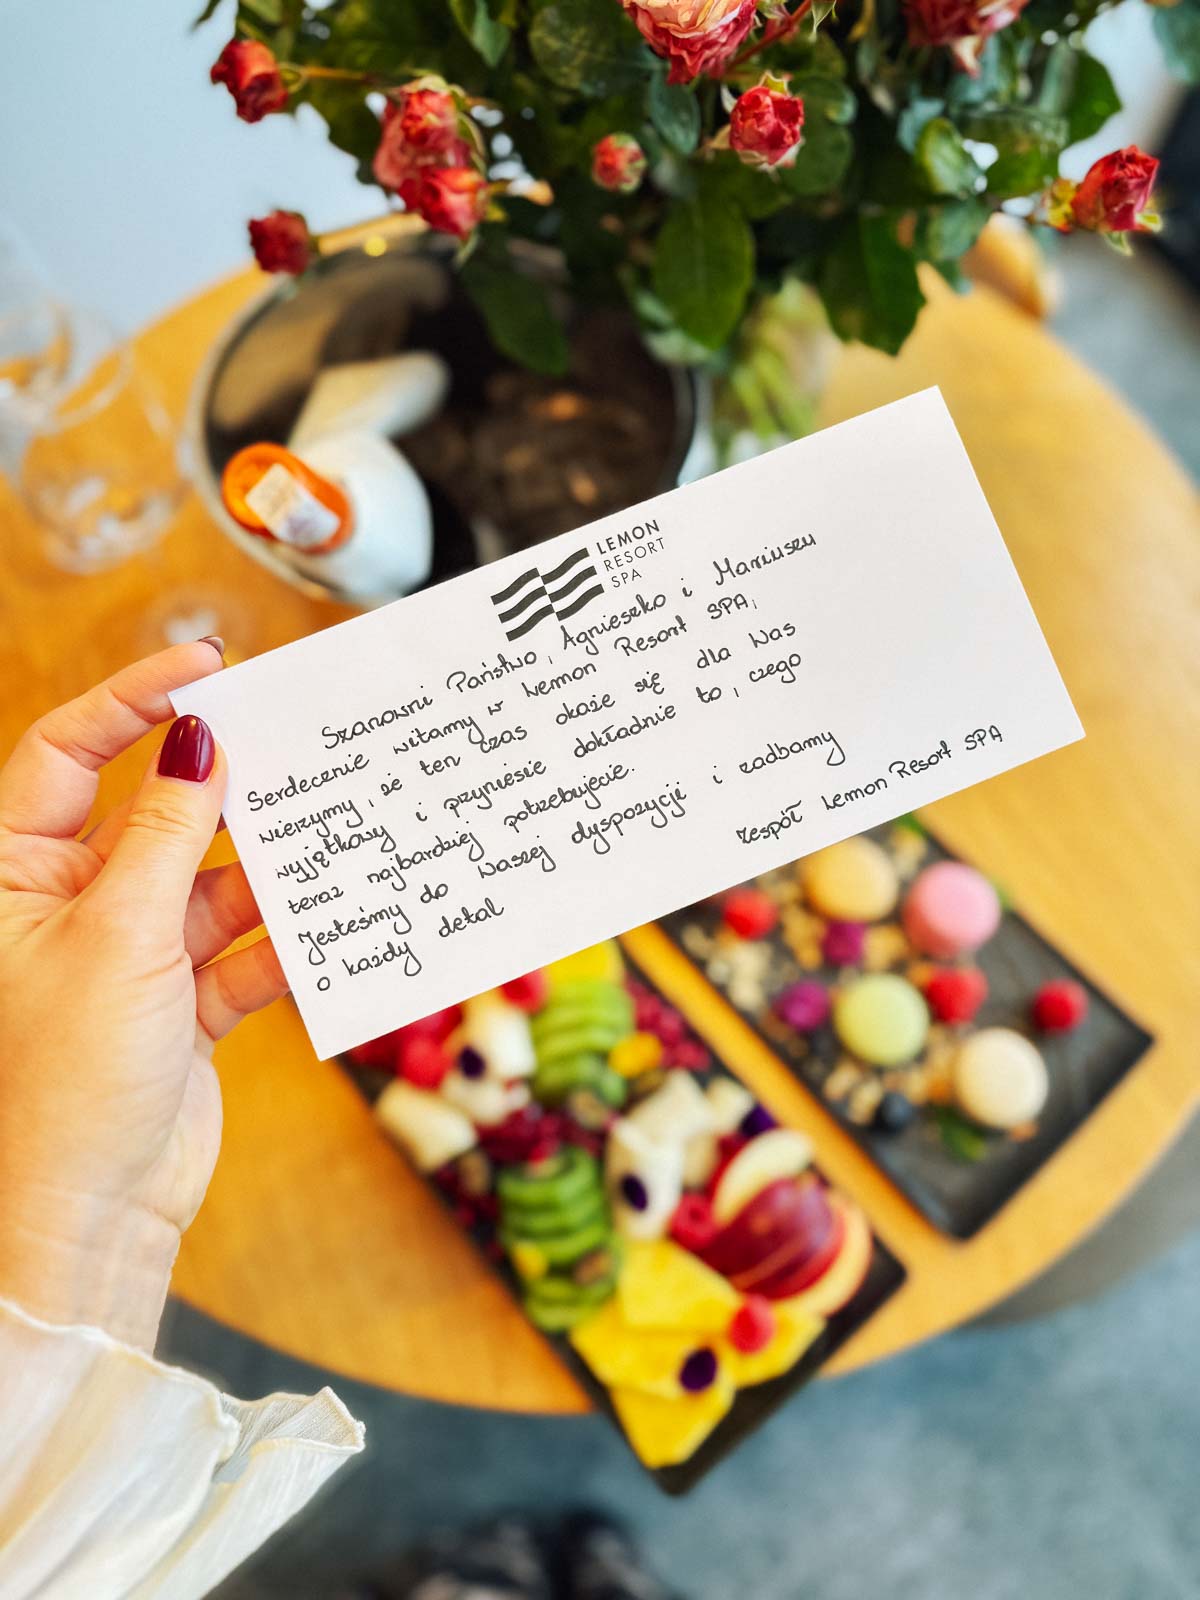 LEMON
RESORT
SPA
Szanowni Państwo, Agnieszko i Mariuszu
Serdecznie witamy w Lemon Resort SPA,
wierzymy, że ten czas okaże się dla Was
wyjątkowy i przyniesie dokładnie to, czego
teraz najbardziej potrzebujecie.
Jesteśmy do Waszej dyspozycji i zadbamy
o każdy detal
Zespół Lemon Resort SPA